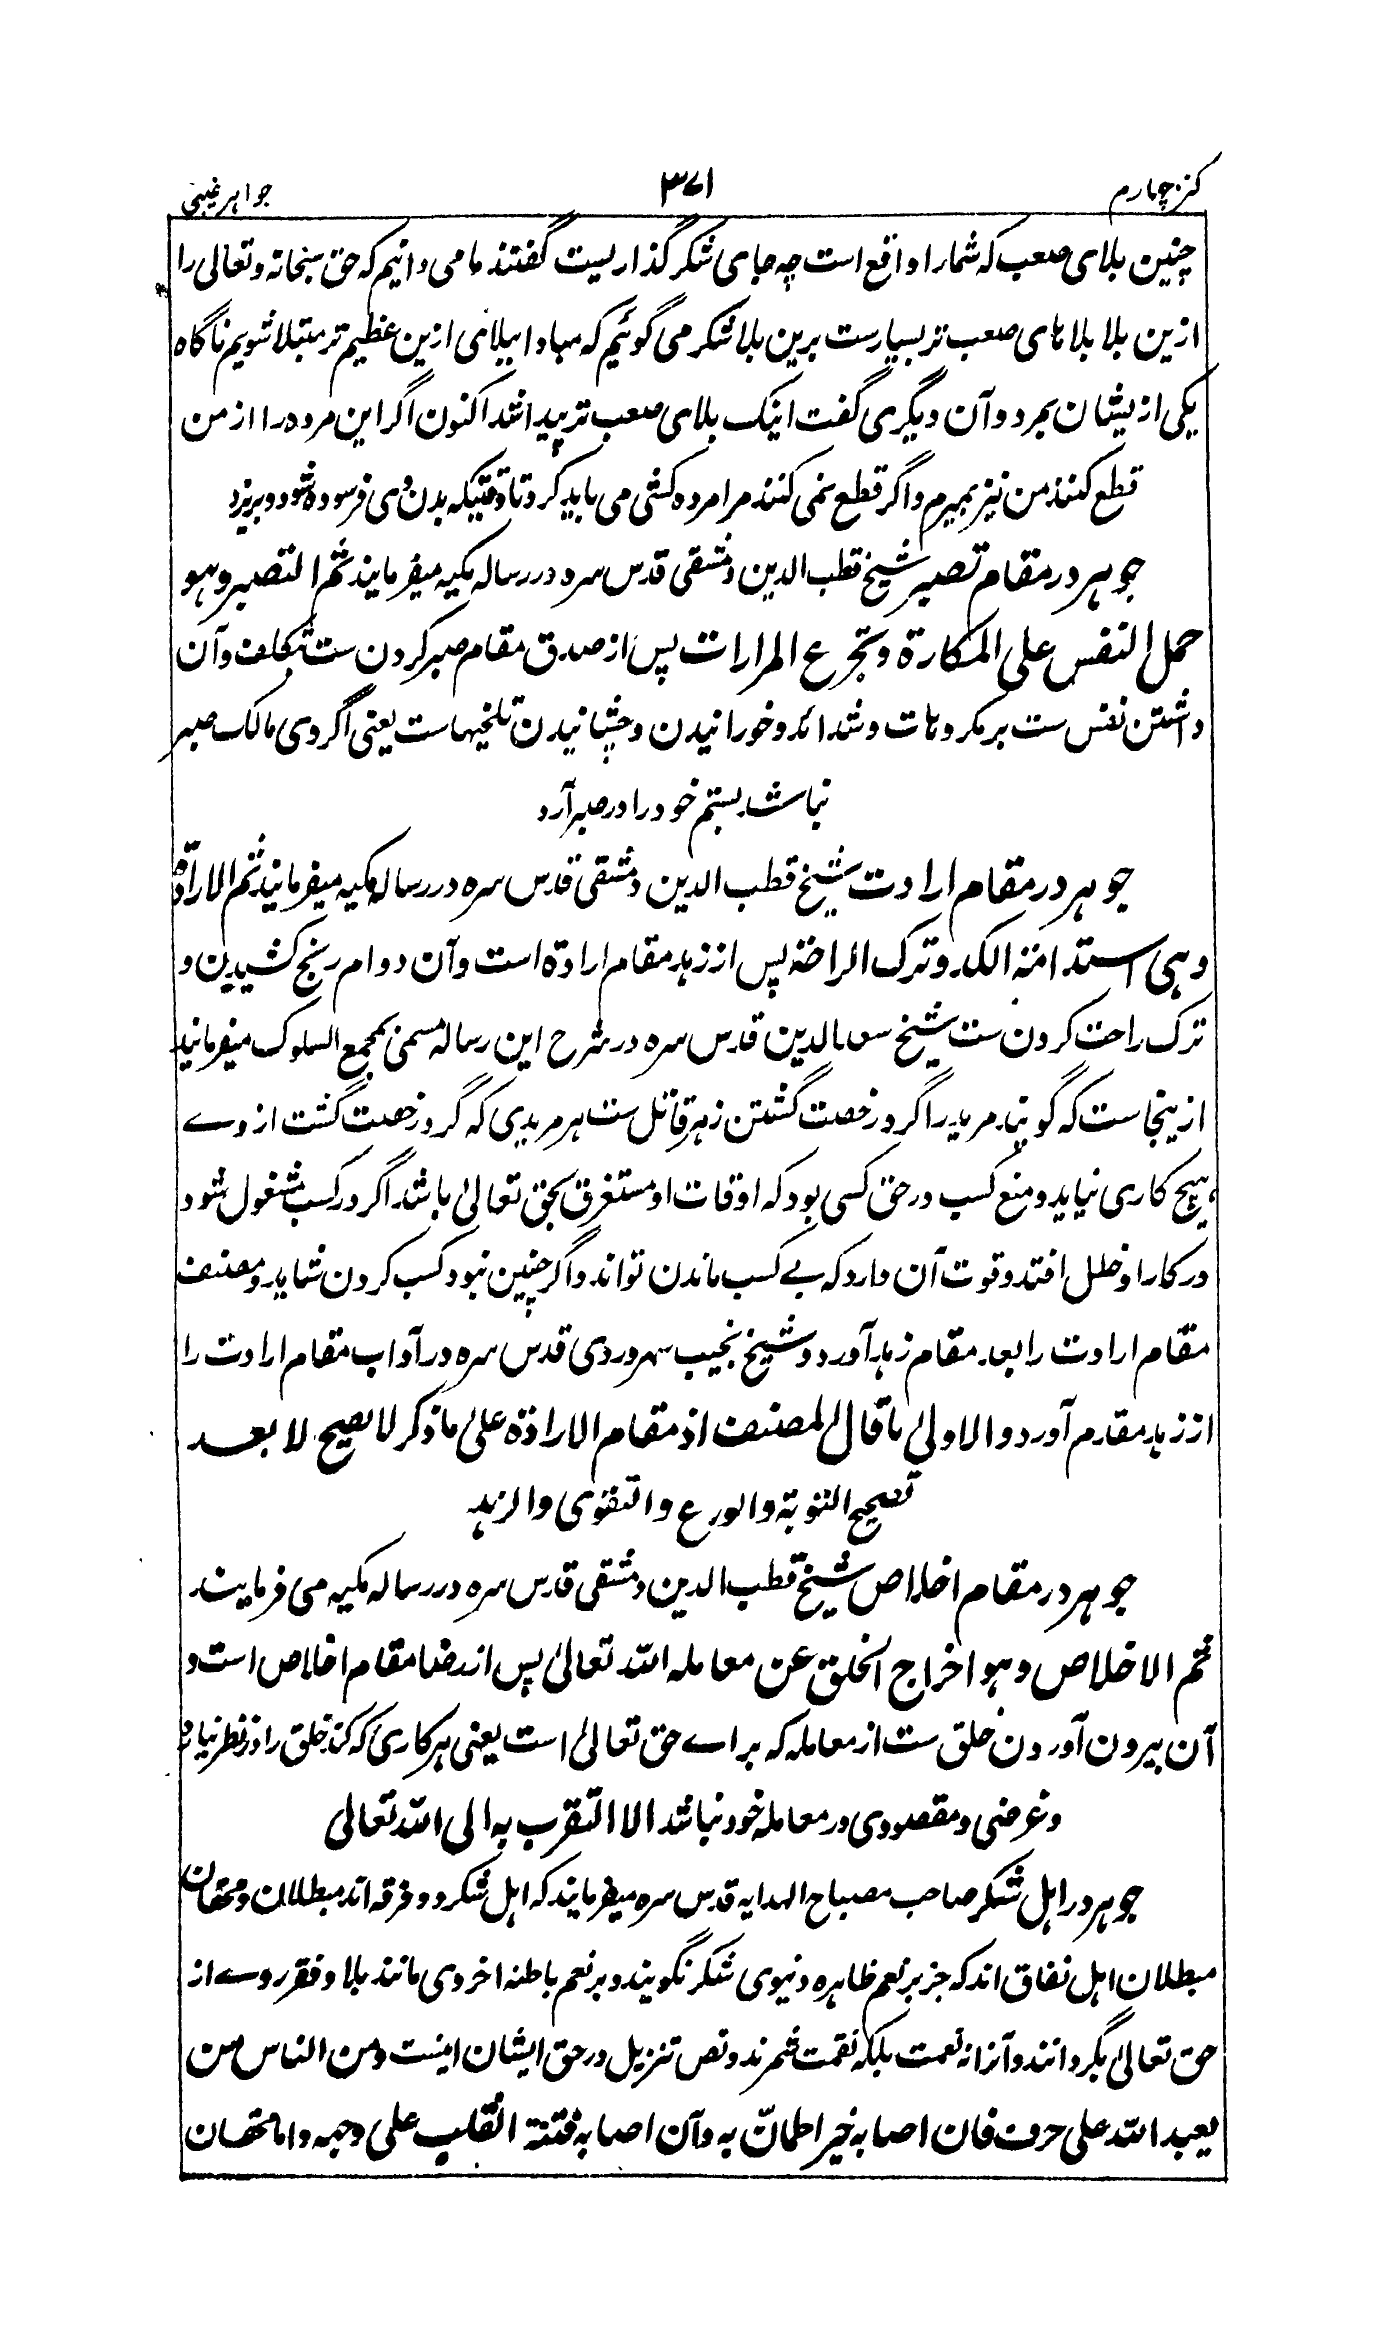 کنز چهارم ۳۷۱ جواهر غیبی
چنین بلای صعب که شما را واقع است چه جای شکر گذاریست گفتند ما می دانیم که حق سبحانه و تعالی را
ازین بلا بلاهای صعب تر بسیارست برین بلا شکر می گوئیم که مبادا ببلای ازین عظیم تر مبتلا شویم ناگاه
یکی از یشان بمرد و آن دیگری گفت اینک بلای صعب تر پیدا شد اکنون اگر این مرده را از من
قطع کنند من نیز بمیرم و اگر قطع نمی کنند مرا مرده کشی می باید کرد تا وقتیکه بدن وی فرسوده شود و بریزد
جوهر در مقام تصبر شیخ قطب الدین دمشقی قدس سره در رساله مکیه میفرمایند ثم التصبر و هو
حمل النفس علی المکارة و تجرع المرارات پس از صدق مقام صبر کردن ست بتکلف و آن
داشتن نفس ست بر مکروهات و شدائد و خورانیدن و چشانیدن تلخیهاست یعنی اگر وی مالک صبر
نباشد بستم خود را در صبر آرد
جوهر در مقام ارادت شیخ قطب الدین دمشقی قدس سره در رساله مکیه میفرمایند ثم الارادة
و هی استدامة الکد و ترک الراحة پس از زهد مقام ارادة است و آن دوام رنج کشیدن و
ترک راحت کردن ست شیخ سعد الدین قدس سره در شرح این رساله مسمی بمجمع السلوک میفرمایند
ازینجاست که گویند مرید را گرد رخصت گشتن زهر قاتل ست هر مریدی که گرد رخصت گشت از وے
هیچ کاری نیاید و منع کسب در حق کسی بود که اوقات او مستغرق بحق تعالیٰ باشد اگر در کسب مشغول شود
در کار او خلل افتد و قوت آن دارد که بے کسب ماندن تواند و اگر چنین نبود کسب کردن شاید و مصنف
مقام ارادت را بعد مقام زهد آورد و شیخ نجیب سهروردی قدس سره در آداب مقام ارادت را
از زهد مقدم آورد و الاولیٰ ما قال المصنف اذ مقام الارادة علیٰ ما ذکر لا یصح الا بعد
تصحیح التوبة و الورع و التقوی و الزهد
جوهر در مقام اخلاص شیخ قطب الدین دمشقی قدس سره در رساله مکیه می فرمایند
ثم الاخلاص و هو اخراج الخلق عن معامله الله تعالیٰ پس از رضا مقام اخلاص است و
آن بیرون آوردن خلق ست از معامله که براے حق تعالیٰ است یعنی هر کاری که کند خلق را در نظر نیارد
و غرضی و مقصودی در معامله خود نباشد الا التقرب به الی الله تعالی
جوهر در اهل شکر صاحب مصباح الهدایه قدس سره میفرمایند که اهل شکر دو فرقه اند مبطلان و محقان
مبطلان اهل نفاق اند که جز بر نعم ظاهره دنیوی شکر نگویند و بر نعم باطنه اخروی مانند بلا و فقر روے از
حق تعالیٰ بگردانند و آنرا نه نعمت بلکه نقمت شمرند و نص تنزیل در حق ایشان اینست و من الناس من
یعبد الله علی حرف فان اصابه خیر اطمانّ به و آن اصابه فتنة انقلب علی وجهه و اما محقان